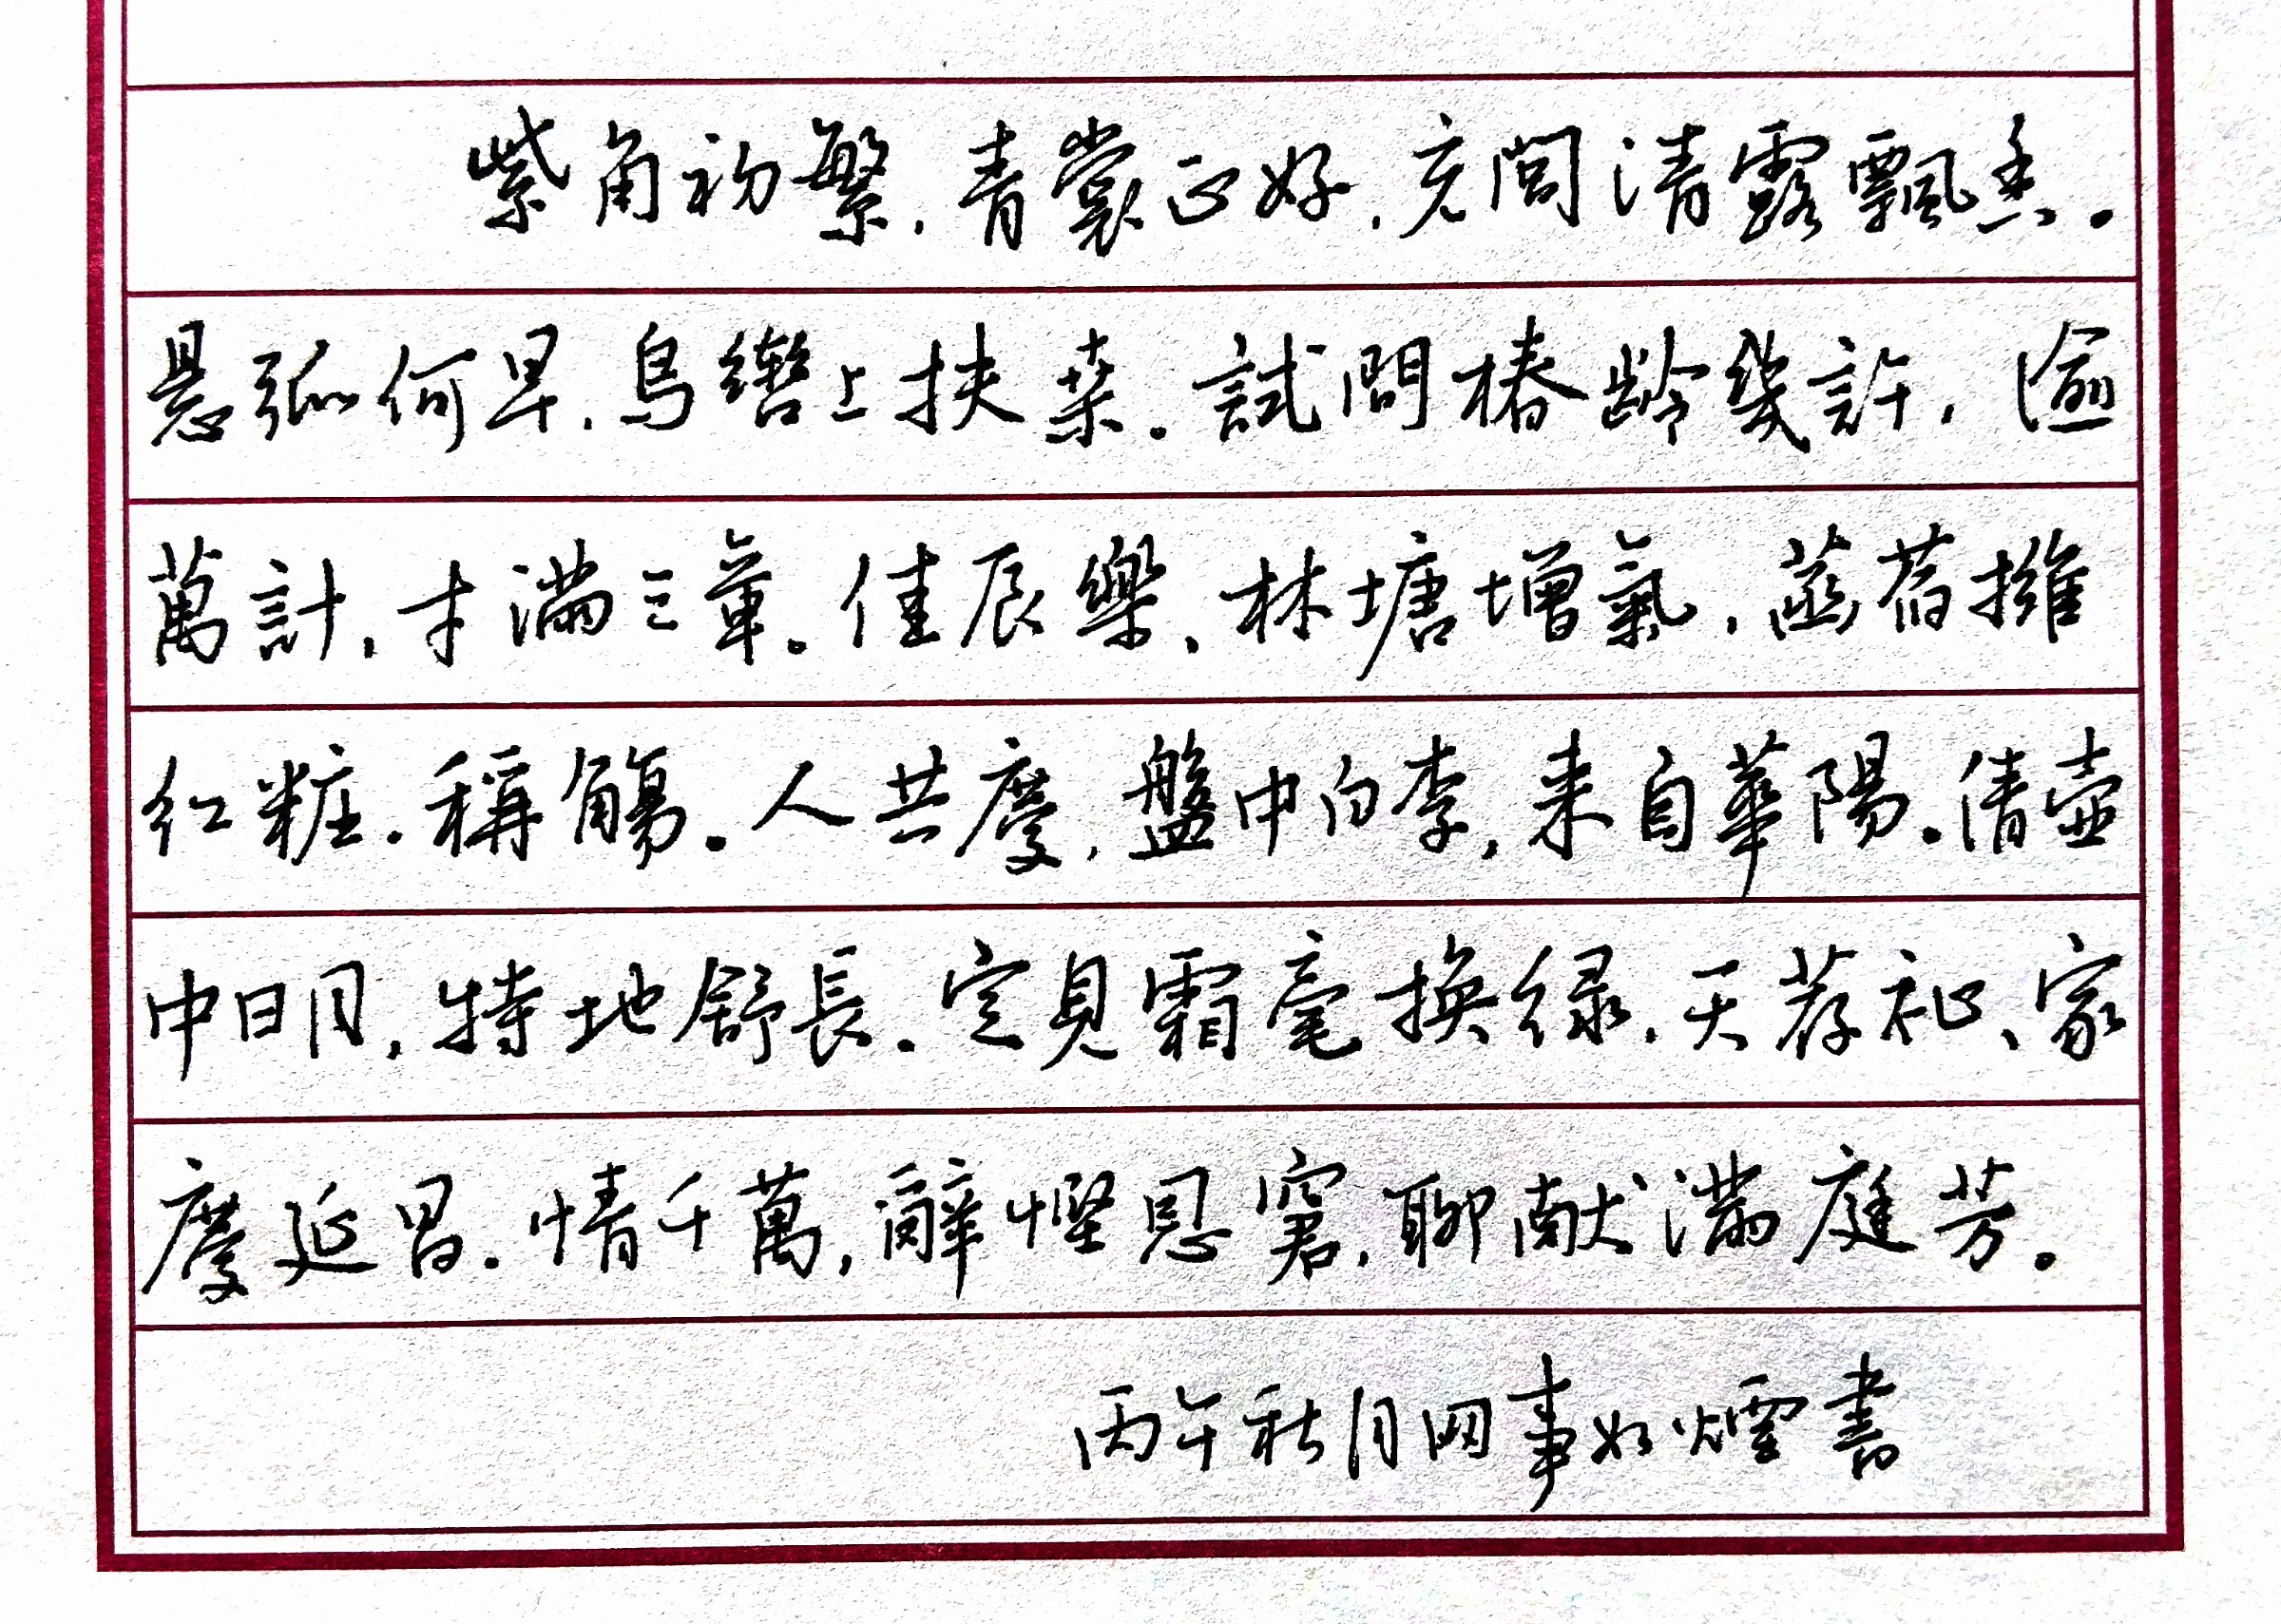 紫角初繁,青裳正好,充閭清露飄香。
悬弧何早,烏轡上扶桑。試問椿齡幾許,逾
萬計,才滿三章。佳辰樂,林塘增氣,菡萏擁
红粧。稱觴。人共慶,盤中白李,来自華陽。倩壺
中日月,特地舒長。定見霜毫换绿,天荐祉、家
慶延昌。情千萬,辭慳思窘,聊献滿庭芳。
丙午秋月四事如煙書